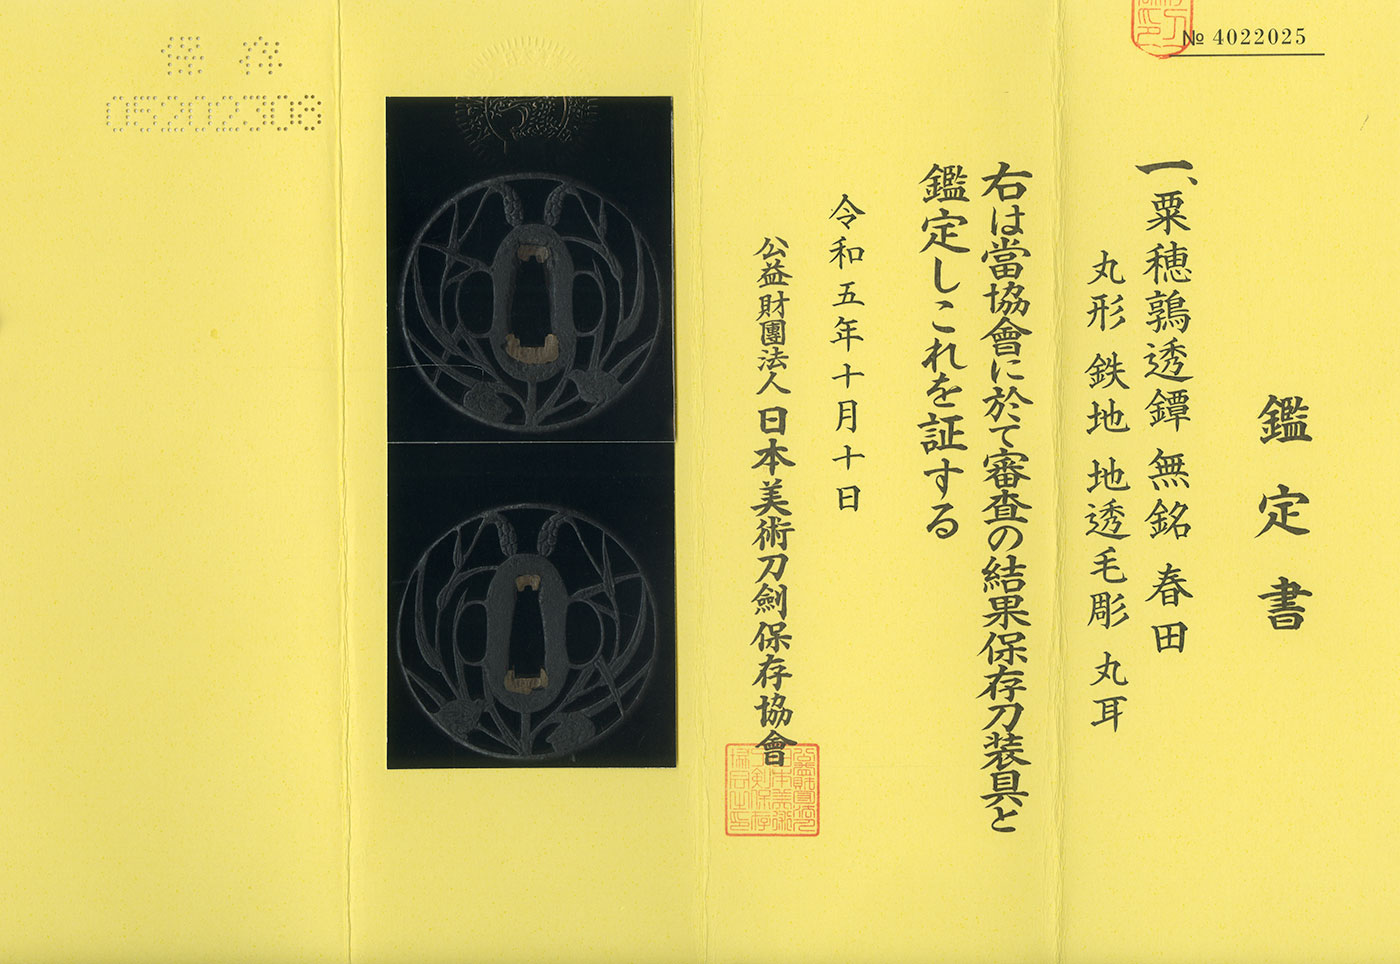 № 4022025
鑑定書
一、粟穂鶉透鐔 無銘 春田
丸形 鉄地 地透毛彫 丸耳
右は當協會に於て審査の結果保存刀装具と
鑑定しこれを証する
令和五年十月十日
公益財團法人 日本美術刀劍保存協會
保存
05202308